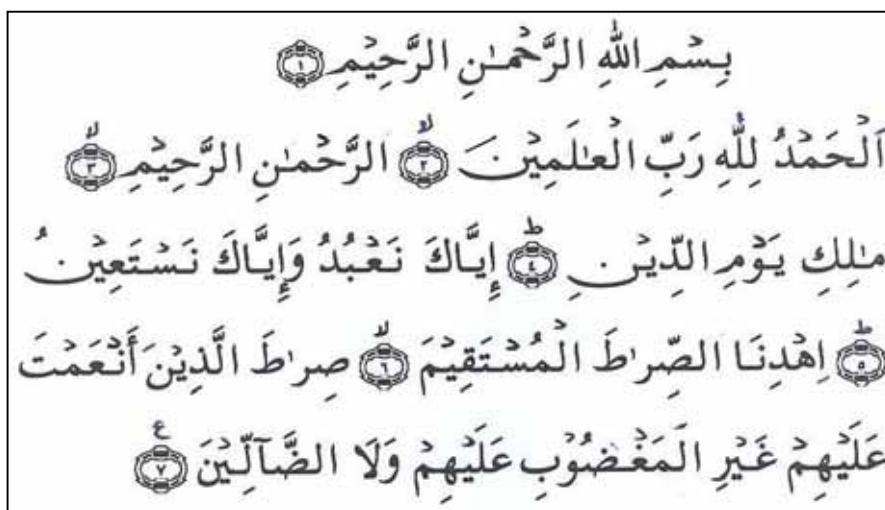 بِسْمِ اللهِ الرَّحْمٰنِ الرَّحِيْمِ ۝١
اَلْحَمْدُ لِلّٰهِ رَبِّ الْعٰلَمِيْنَ ۝٢ۙ الرَّحْمٰنِ الرَّحِيْمِ ۝٣ۙ
مٰلِكِ يَوْمِ الدِّيْنِ ۝٤ؕ إِيَّاكَ نَعْبُدُ وَإِيَّاكَ نَسْتَعِيْنُ
۝٥ؕ اِهْدِنَا الصِّرٰطَ الْمُسْتَقِيْمَ ۝٦ۙ صِرٰطَ الَّذِيْنَ أَنْعَمْتَ
عَلَيْهِمْ غَيْرِ الْمَغْضُوْبِ عَلَيْهِمْ وَلَا الضَّآلِّيْنَ ۝٧ع